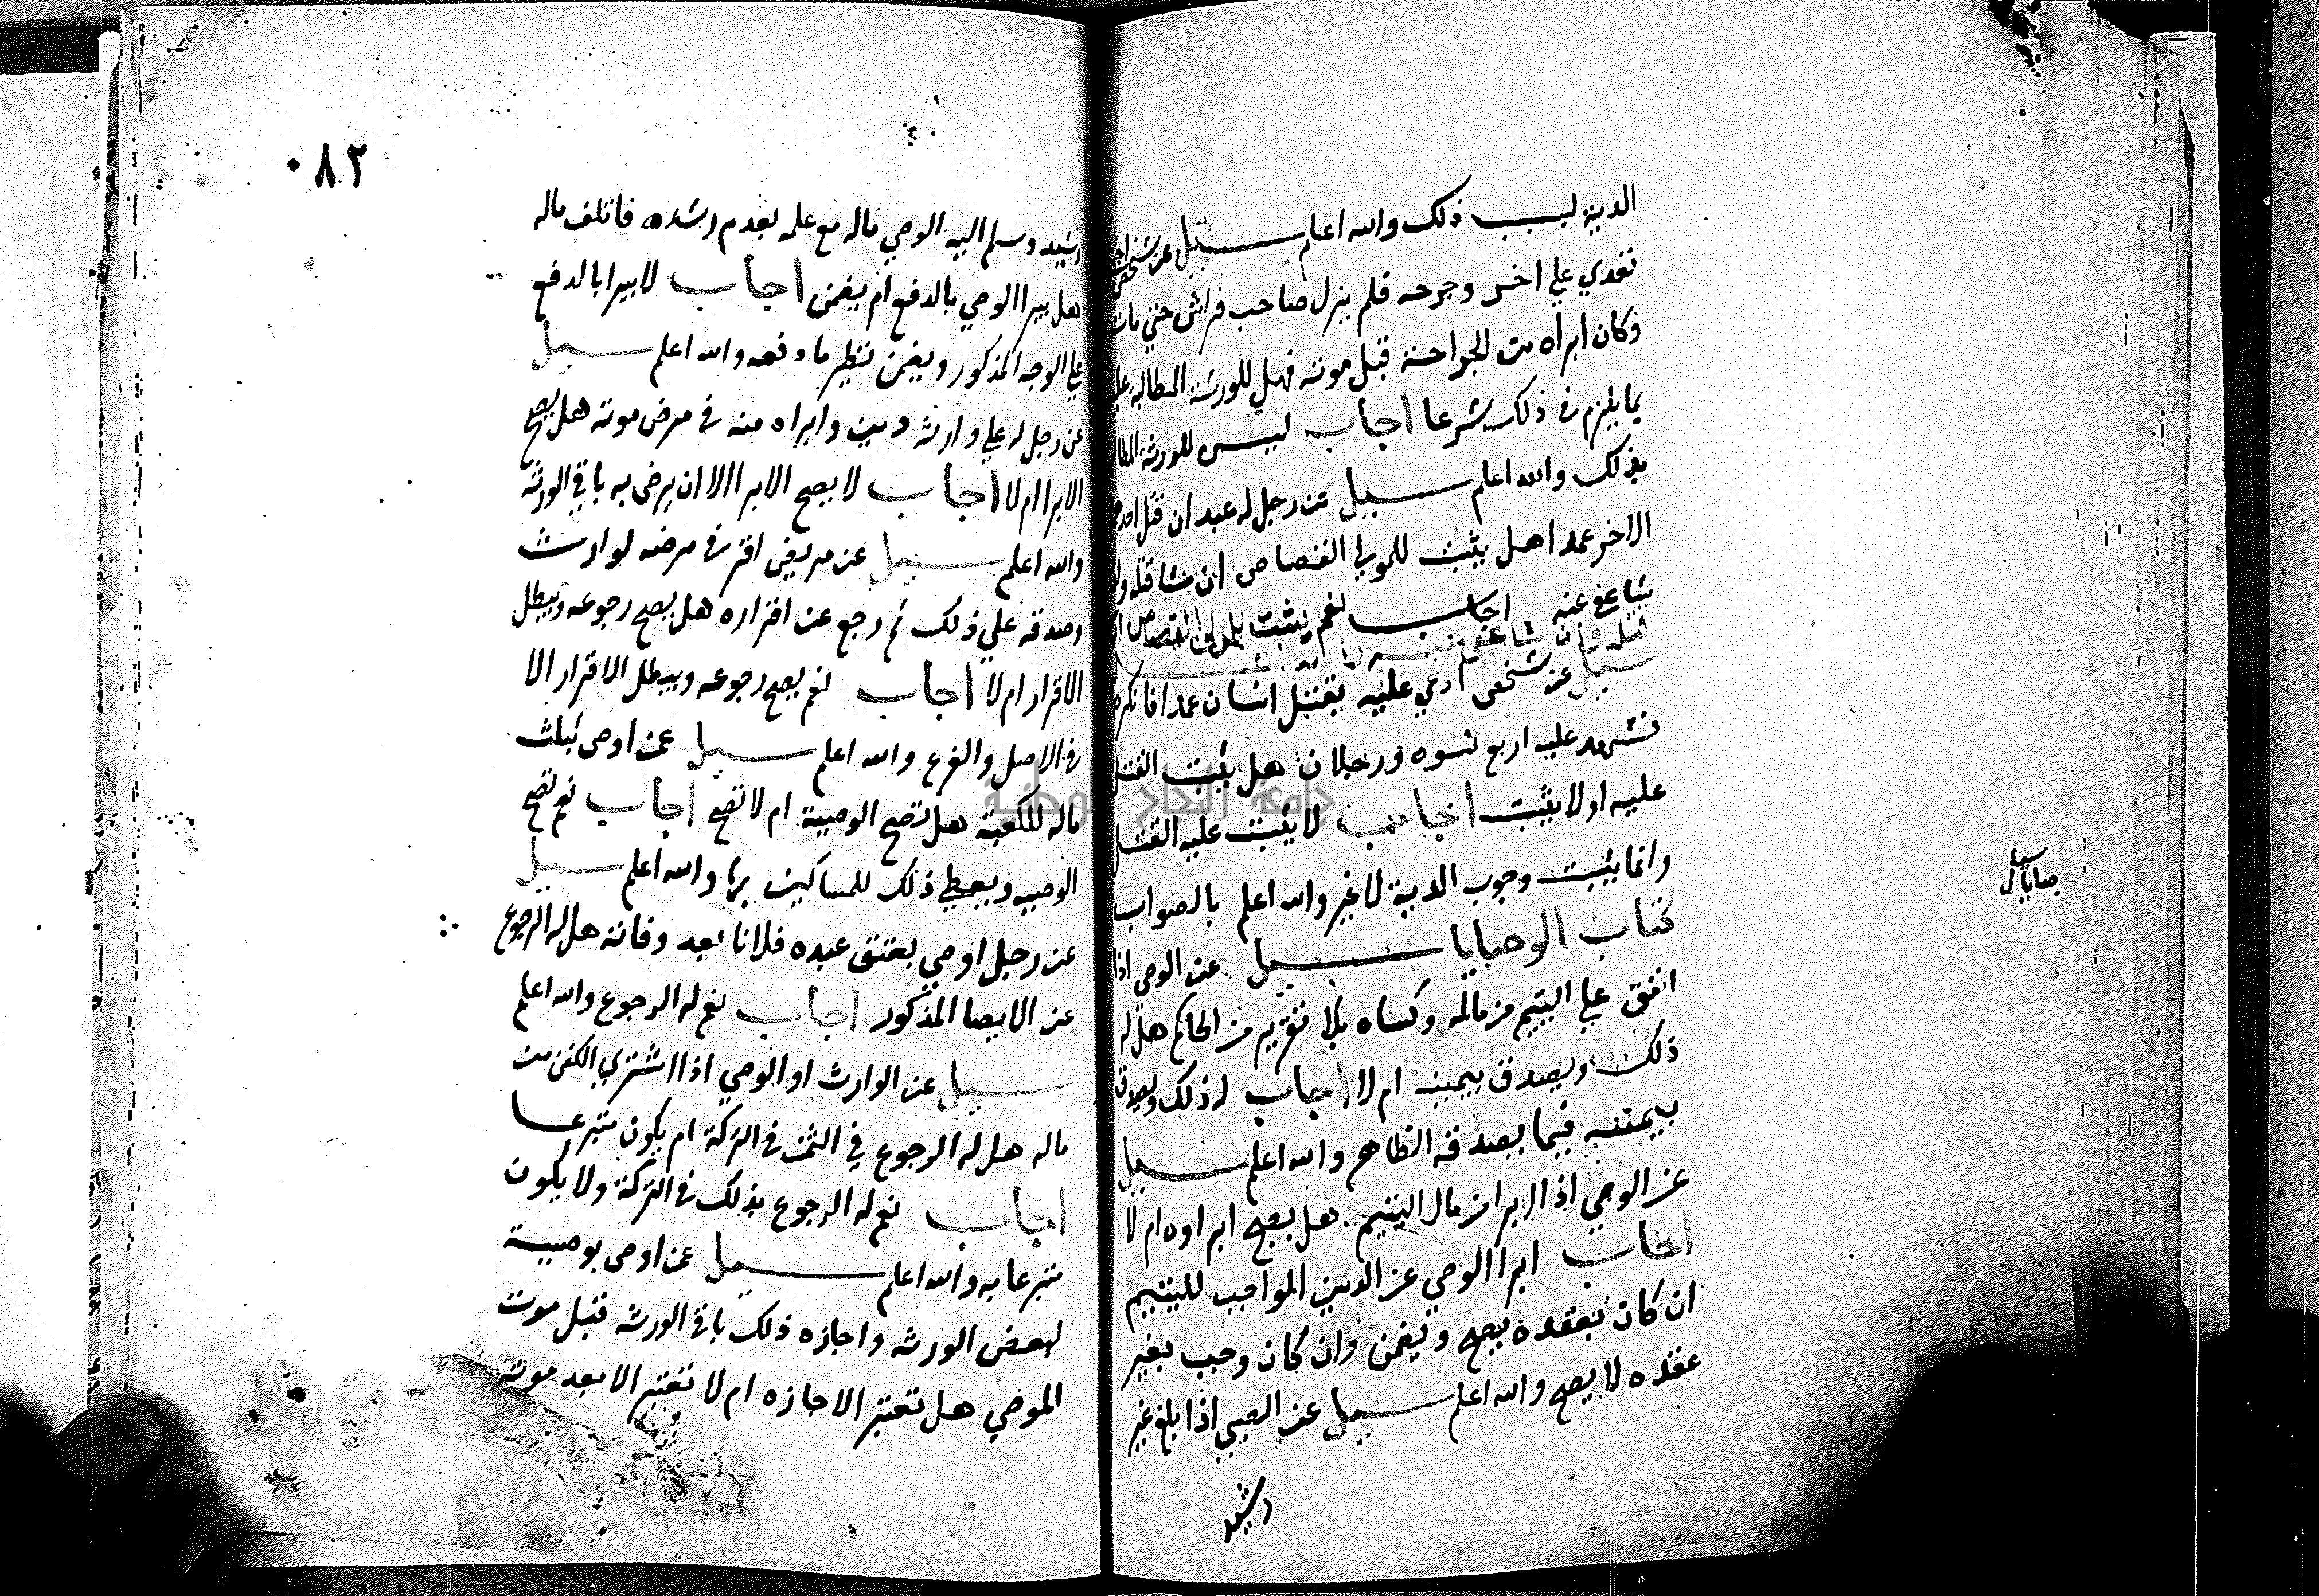 الدية لسبب ذلك والله اعلم سئيل عن شخص
تعدي علي اخر وجرحه فلم يزل صاحب فراش حتي مات
وكان ابراه من الجراحة قبل موته فهل للورثة المطالبة عليه
بما يلزم في ذلك شرعا اجاب ليس للورثة المطالبة
بذلك والله اعلم سيل عن رجل له عبدان قتل احدهما
الاخر عمدا هل يثبت للمولي القصاص ان شا قتله وان
شا عفي عنه اجاب نعم يثبت للمولي القصاص ان
قتله وان شا عفي عنه والله اعلم
سيل عن شخص ادعي عليه بقتل انسان عمدا فانكر
فشهد عليه اربع نسوه ورجلان هل يثبت القتل
عليه او لا يثبت اجاب لا يثبت عليه القتل
وانما يثبت وجوب الدية لا غير والله اعلم بالصواب
كتاب الوصايا سيل عن الوصي اذا
انفق علي اليتيم من ماله وكساه بلا تقرير من الحاكم هل له
ذلك ويصدق بيمينه ام لا اجاب له ذلك ويصدق
بيمينه فيما يصدقه الظاهر والله اعلم سيل
عن الوصي اذا ابرا من مال اليتيم هل يصح ابراوه ام لا
اجاب ابرا الوصي عن الدين الواجب لليتيم
ان كان بعقده يصح ويضمن وان كان وجب بغير
عقده لا يصح والله اعلم سيل عن الصبي اذا بلغ غير
رشيد
سيل
وصايا
٠٨٢
رشيد وسلم اليه الوصي ماله مع علمه بعدم رشده فاتلف ماله
هل يبرا الوصي بالدفع ام يضمن اجاب لا يبرا بالدفع
علي الوجه المذكور ويضمن نظير ما دفعه والله اعلم سيل
عن رجل له علي وارثه دين وابراه منه في مرض موته هل يصح
الابرا ام لا اجاب لا يصح الابرا الا ان يرضي به باقي الورثة
والله اعلم سيل عن مريض اقر في مرضه لوارث
وصدقه علي ذلك ثم رجع عن اقراره هل يصح رجوعه ويبطل
الاقرار ام لا اجاب نعم يصح رجوعه ويبطل الاقرار الا
في الاصل والفرع والله اعلم سيل عن اوصي بثلث
ماله للكعبة هل تصح الوصية ام لا تصح اجاب نعم تصح
الوصيه ويعطي ذلك للمساكين بها والله اعلم سيل
عن رجل اوصي بعتق عبده فلانا بعد وفاته هل له الرجوع
عن الايصا المذكور اجاب نعم له الرجوع والله اعلم
سيل عن الوارث او الوصي اذا اشتري الكفن من
ماله هل له الرجوع في الثمن في التركة ام يكون متبرعا
اجاب نعم له الرجوع بذلك في التركة ولا يكون
متبرعا به والله اعلم سيل عن اوصي بوصية
لبعض الورثه واجازه ذلك باقي الورثه قبل موت
الموصي هل تعتبر الاجازه ام لا تعتبر الا بعد موته
جامعة النجاح الوطنية